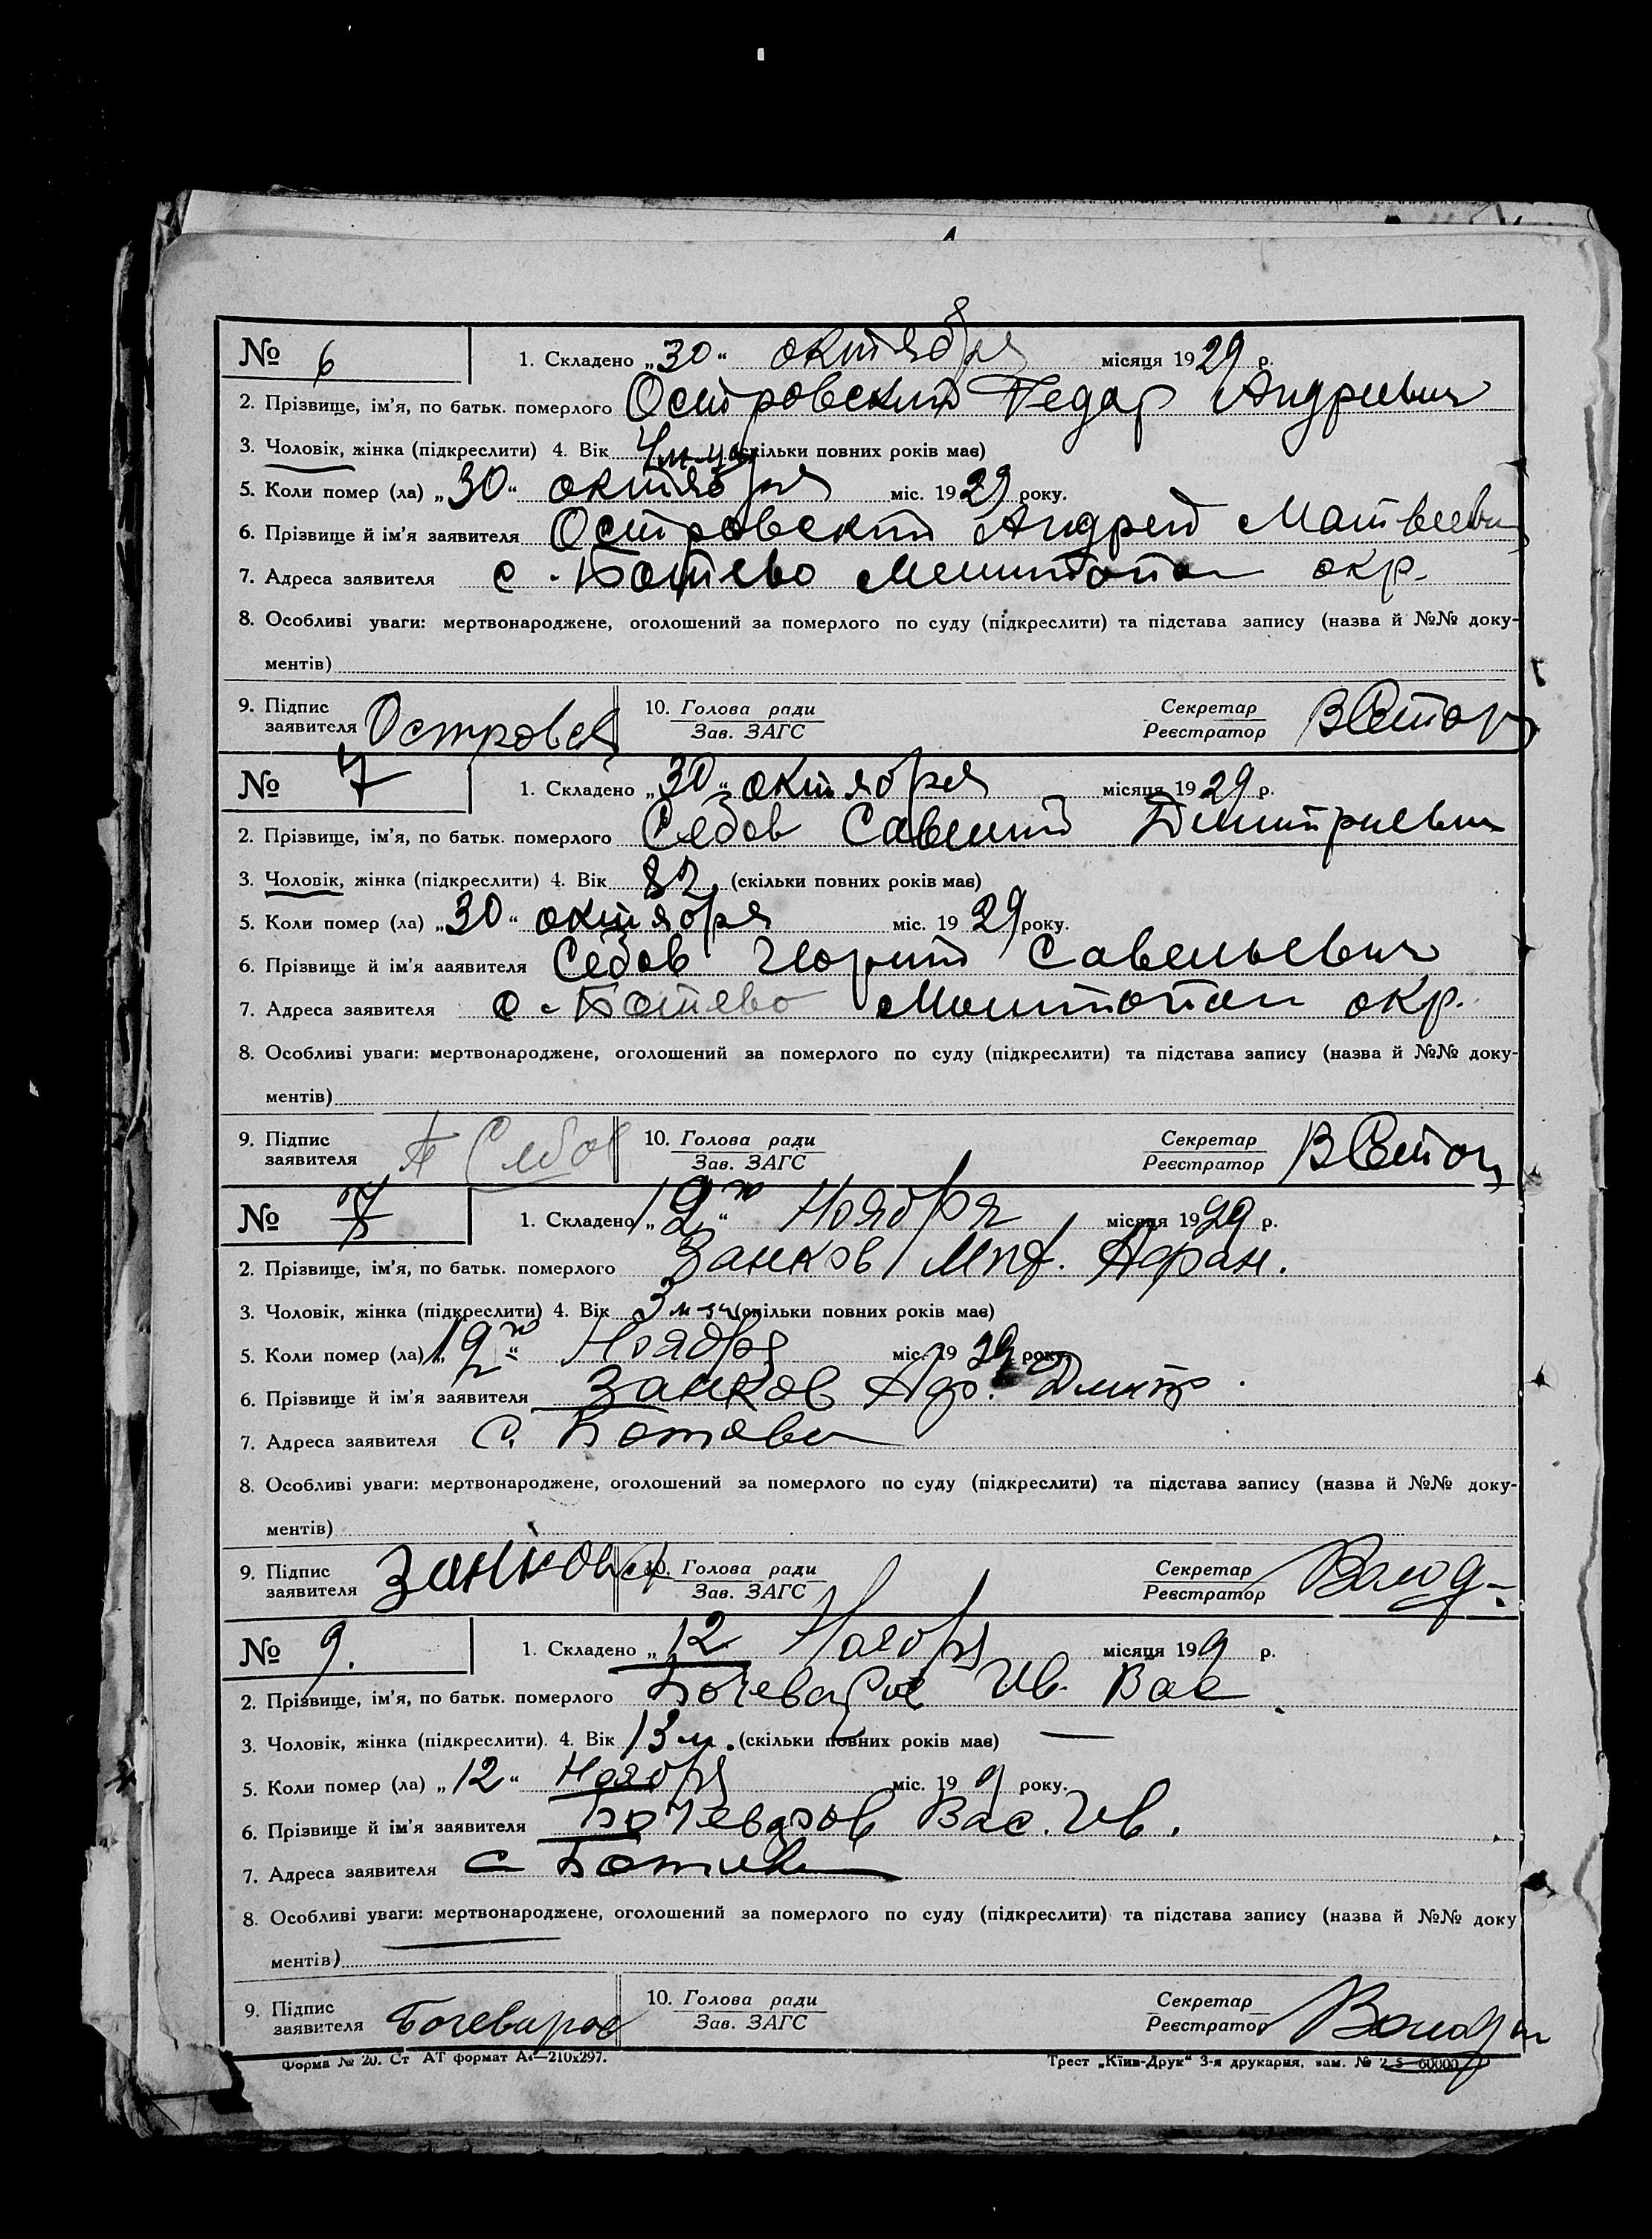 № 6 1. Складено „30" октября місяця 1929 р.
2. Прізвище, ім'я, по батьк. померлого Островский Федар Андреевич
3. Чоловік, жінка (підкреслити) 4. Вік (скільки повних років має)
5. Коли помер (ла) „30" октября міс. 1929 року.
6. Прізвище й ім'я заявителя Островский Андрей Матвеевич
7. Адреса заявителя с. Ботево окр.
8. Особливі уваги: мертвонароджене, оголошений за померлого по суду (підкреслити) та підстава запису (назва й №№ доку-
ментів)
9. Підпис заявителя Островск 10. Голова ради Зав. ЗАГС Секретар Реєстратор
№ 7 1. Складено „30" октября місяця 1929 р.
2. Прізвище, ім'я, по батьк. померлого Седов Савелий Димитриевич
3. Чоловік, жінка (підкреслити) 4. Вік 82 (скільки повних років має)
5. Коли помер (ла) „30" октября міс. 1929 року.
6. Прізвище й ім'я заявителя Седов Савельевич
7. Адреса заявителя с. Ботево окр.
8. Особливі уваги: мертвонароджене, оголошений за померлого по суду (підкреслити) та підстава запису (назва й №№ доку-
ментів)
9. Підпис заявителя Седов 10. Голова ради Зав. ЗАГС Секретар Реєстратор
№ 1. Складено Ноября місяця 1929 р.
2. Прізвище, ім'я, по батьк. померлого Занков Афан.
3. Чоловік, жінка (підкреслити) 4. Вік 3 (скільки повних років має)
5. Коли помер (ла) Ноября міс. 1929 року.
6. Прізвище й ім'я заявителя Занков Аф. Дмитр.
7. Адреса заявителя с. Ботево
8. Особливі уваги: мертвонароджене, оголошений за померлого по суду (підкреслити) та підстава запису (назва й №№ доку-
ментів)
9. Підпис заявителя Занков 10. Голова ради Зав. ЗАГС Секретар Реєстратор
№ 9. 1. Складено „12 Ноября місяця 199 р.
2. Прізвище, ім'я, по батьк. померлого Бочеваров Ив. Вас.
3. Чоловік, жінка (підкреслити). 4. Вік 13 м. (скільки повних років має) —
5. Коли помер (ла) „12" Ноября міс. 199 року.
6. Прізвище й ім'я заявителя Бочеваров Вас. Ив.
7. Адреса заявителя с Ботиево
8. Особливі уваги: мертвонароджене, оголошений за померлого по суду (підкреслити) та підстава запису (назва й №№ доку
ментів)
9. Підпис заявителя Бочеваров 10. Голова ради Зав. ЗАГС Секретар Реєстратор
Форма № 20. Ст АТ формат А4—210х297. Трест „Київ-Друк" 3-я друкарня, зам. №